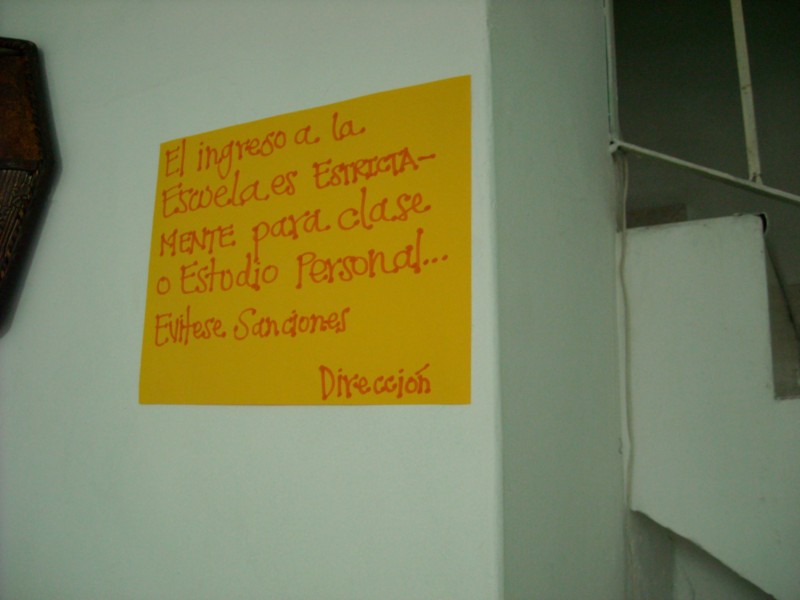 El ingreso a la
Escuela es ESTRICTA-
MENTE para clase
o Estudio Personal...
Evitese Sanciones
Dirección